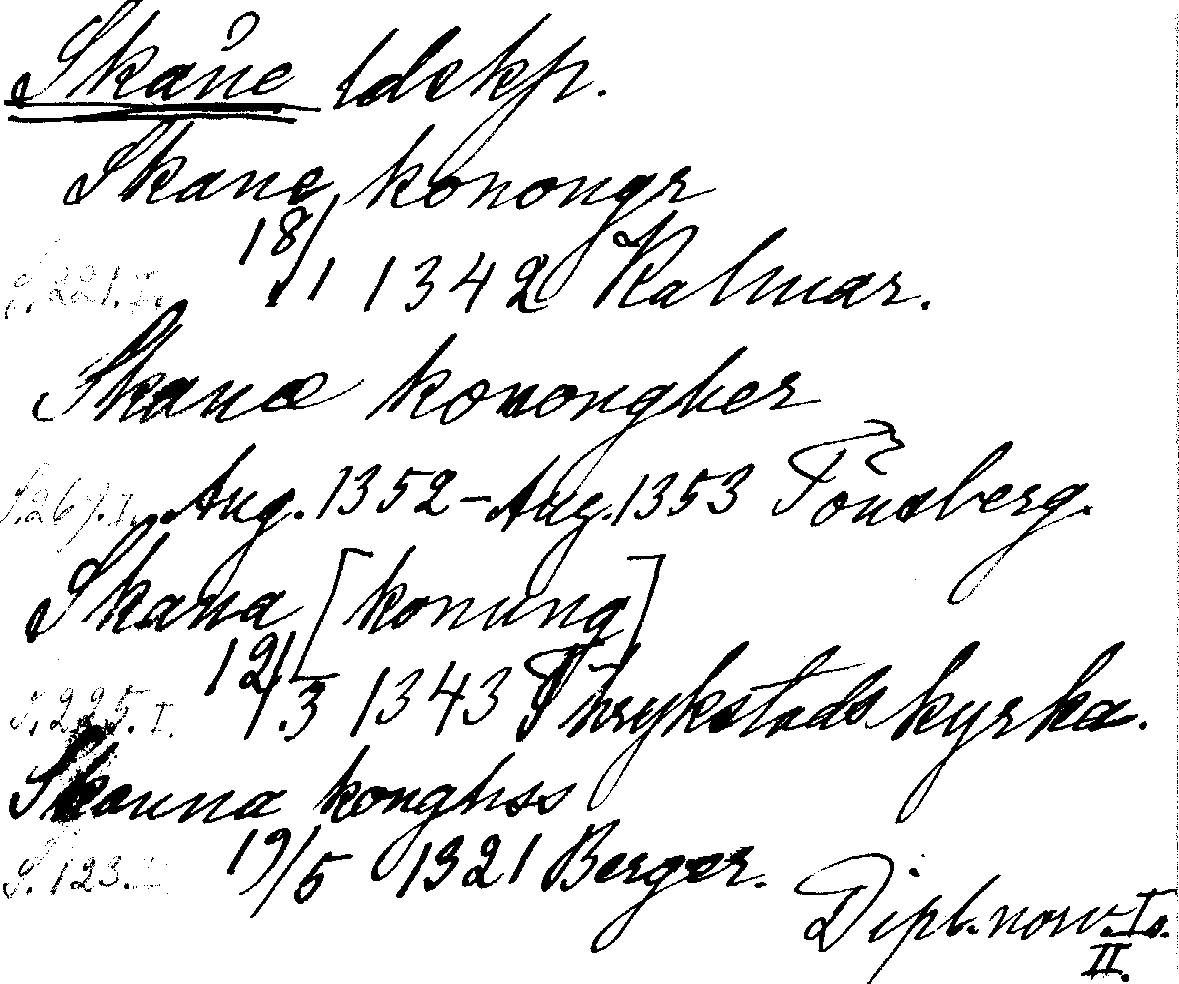 Skåne ldskp.
Skane konongr
S. 221. I. 18/1 1342 Kalmar.
Skanæ konongher
S. 267. I. Aug. 1352 - Aug. 1353 Tönsberg.
Skana [konung]
S. 225. I. 12/3 1343 Thrykstads kyrka.
Skauna konghss
S. 123. 19/5 1321 Berger.
Dipl. norv. I o.
II.